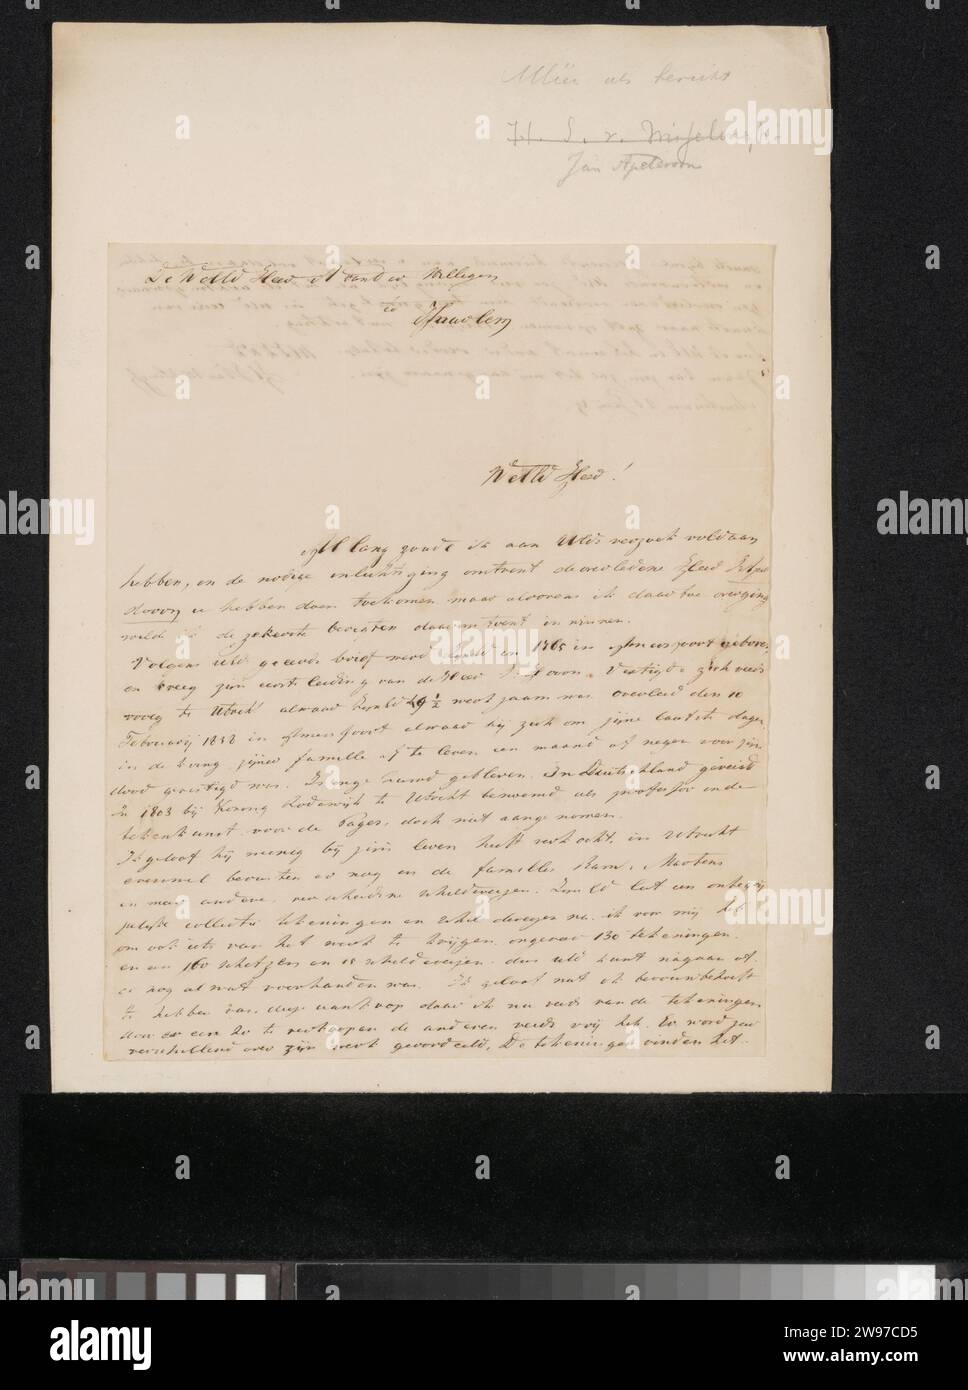 als bericht
Jan Apeldoorn
De WelEd Heer A van der Willigen
te
Haarlem
WelEd Heer!
Al lang zoude ik aan UEds verzoek voldaan
hebben, en de nodige inlichtiging omtrent de overledene Heer J Apel
doorn u hebben doen toekomen maar alvoorens ik daar toe overging
wilde ik de zekerste berigten daar omtrent in winnen.
Volgens UEd geeerde brief werd in 1765 in Amersfoort geboren,
en kreeg zijn eerste leiding van de Heer Vestigde zich reeds
vroeg te Utrecht alwaar 49½ jaar was overleed den 10
Februarij 1838 in Amersfoort alwaar hij zich om zijne laatste dagen
in de kring zijner familie af te leven een maand of negen voor zijn
dood gevestigd was. Is ongehuwd gebleven. In Duitschland gereisd
In 1803 bij Koning Lodewijk te Utrecht benoemd als professor in de
tekenkunst voor de Pages, doch niet aangenomen.
Ik geloof hij weinig bij zijn leven heeft verkocht, in Utrecht
evenwel berusten er nog in de famillie Ram, Martens
en meer andere, verscheidene schilderijen. liet een onbegrij
pelijke collectie tekeningen en schilderijen na. ik voor mij heb
om ook iets van het werk te krijgen ongeveer 130 tekeningen
en en 160 schetzen en 18 schilderijen. dus UEd kunt nagaan of
er nog al wat voorhanden was. Ik geloof niet ik berouw behoeft
te hebben van daar ik nu reeds van de tekeningen
door er een 20 te verkoopen de anderen reeds vrij heb. Er word zeer
verschillend over zijn werk geoordeeld. De tekeningen vinden het
alamy
Image ID: 2W97CD5
www.alamy.com